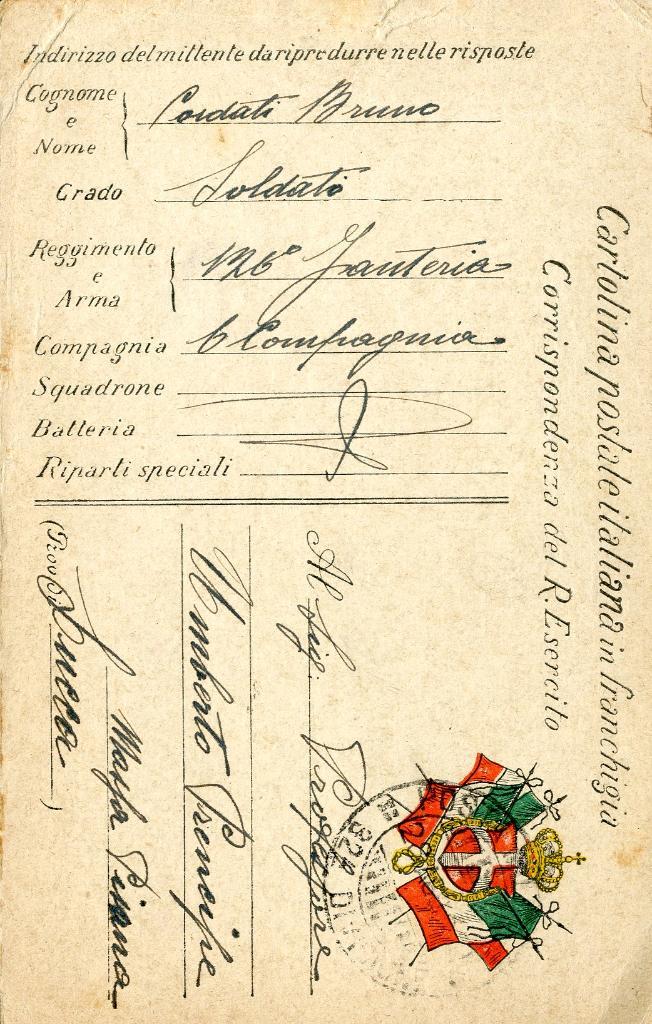 Indirizzo del mittente da riprodurre nelle risposte
Cognome e Nome Cordati Bruno
Grado Soldato
Reggimento e Arma 126° Fanteria
Compagnia 6 Compagnia
Squadrone
Batteria
Riparti speciali
Cartolina postale italiana in franchigia
Corrispondenza del R. Esercito
Al Sig. Professore
Umberto Prencipe
Massa Pisana
(Prov. di Lucca)